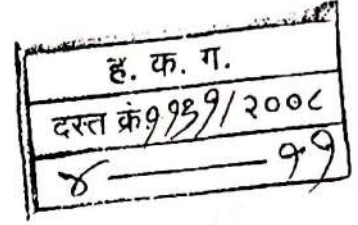 ह. क. ग.
दस्त क्रं.११३१/२००८
४ — ११